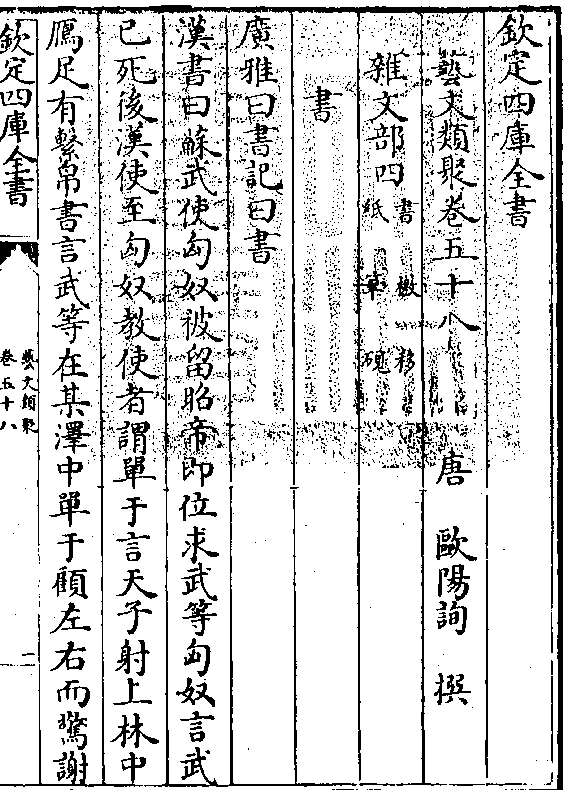 欽定四庫全書
藝文類聚卷五十八 唐 歐陽詢 撰
雜文部四 書 檄 移
紙 筆 硯
書
廣雅曰書記曰書
漢書曰蘇武使匈奴被留昭帝即位求武等匈奴言武
已死後漢使至匈奴教使者謂單于言天子射上林中
鴈足有繫帛書言武等在某澤中單于顧左右而驚謝
欽定四庫全書
藝文類聚
卷五十八